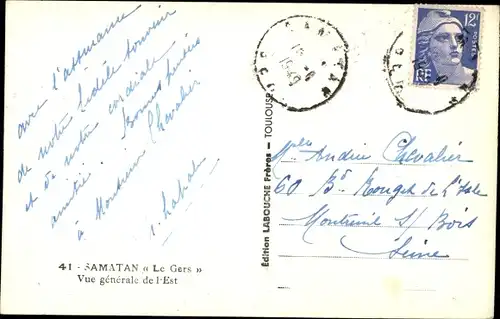 avec l'assurance
de notre fidèle souvenir
et de notre cordiale
amitié. Bonnes pensées
à Monsieur Chevalier
41 - SAMATAN « Le Gers »
Vue générale de l'Est
Edition LABOUCHE Frères - TOULOUSE
SAMATAN
12F
POSTES
RF
Andrée Chevalier
60 Bd Rouget de L'Isle
Montreuil s/ Bois
Seine